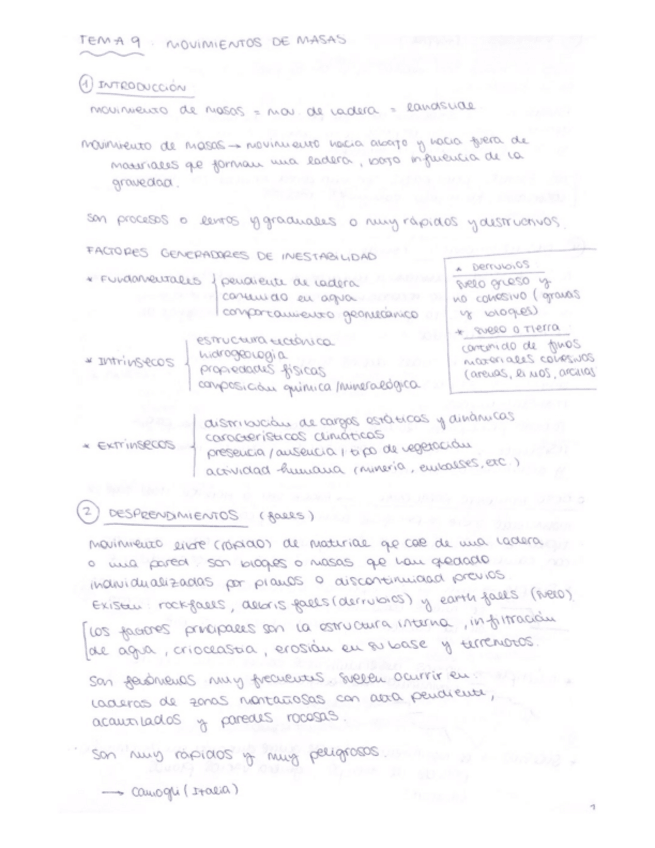 TEMA 9 . MOVIMIENTOS DE MASAS
1 INTRODUCCIÓN
movimiento de masas = mov. de ladera = landslide
movimiento de masas → movimiento hacia abajo y hacia fuera de
materiales qe forman una ladera, bajo influencia de la
gravedad.
son procesos o lentos y graduales o muy rápidos y destructivos.
FACTORES GENERADORES DE INESTABILIDAD
* Fundamentales
pendiente de ladera
contenido en agua
comportamiento geomecánico
* Intrínsecos
estructura tectónica
hidrogeología
propiedades físicas
composición química/mineralógica
* Extrínsecos
distribución de cargas estáticas y dinámicas
características climáticas
presencia/ausencia/tipo de vegetación
actividad humana (minería, embalses, etc)
* Derrubios
suelo grueso y
no cohesivo (gravas
y bloques)
* suelo o tierra
contenido de finos
materiales cohesivos
(arenas, limos, arcillas
2 DESPRENDIMIENTOS (falls)
movimiento libre (rápido) de material qe cae de una ladera
o una pared. son bloqes o masas qe han qedado
individualizadas por planos o discontinuidad previos
Existen rockfalls, debris falls (derrubios) y earth falls (suelo)
Los factores principales son la estructura interna, infiltración
de agua, crioclastia, erosión en su base y terremotos.
son fenómenos muy frecuentes. suelen ocurrir en
laderas de zonas montañosas con alta pendiente,
acantilados y paredes rocosas.
son muy rápidos y muy peligrosos.
→ Camogli (Italia)
1